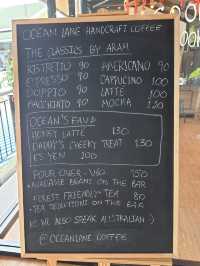 OCEAN LANE HANDCRAFT COFFEE
THE CLASSICS BY ARAM
RISTRETTO 90 AMERICANO 90
ESPRESSO 90 CAPPUCINO 100
DOPPIO 90 LATTE 100
MACCHIATO 90 MOCHA 120
OCEAN'S FAV'S
HONEY LATTE 130
DADDY'S CHEEKY TREAT 130
ES YEN 100
POUR OVER - V60 150
AVAILABLE BEANS ON THE BAR
FOREST FRIENDLY TEA 80
TEA SELECTIONS ON THE BAR
WE ALSO SPEAK AUSTRALIAN :)
@ OCEANLANE COFFEE